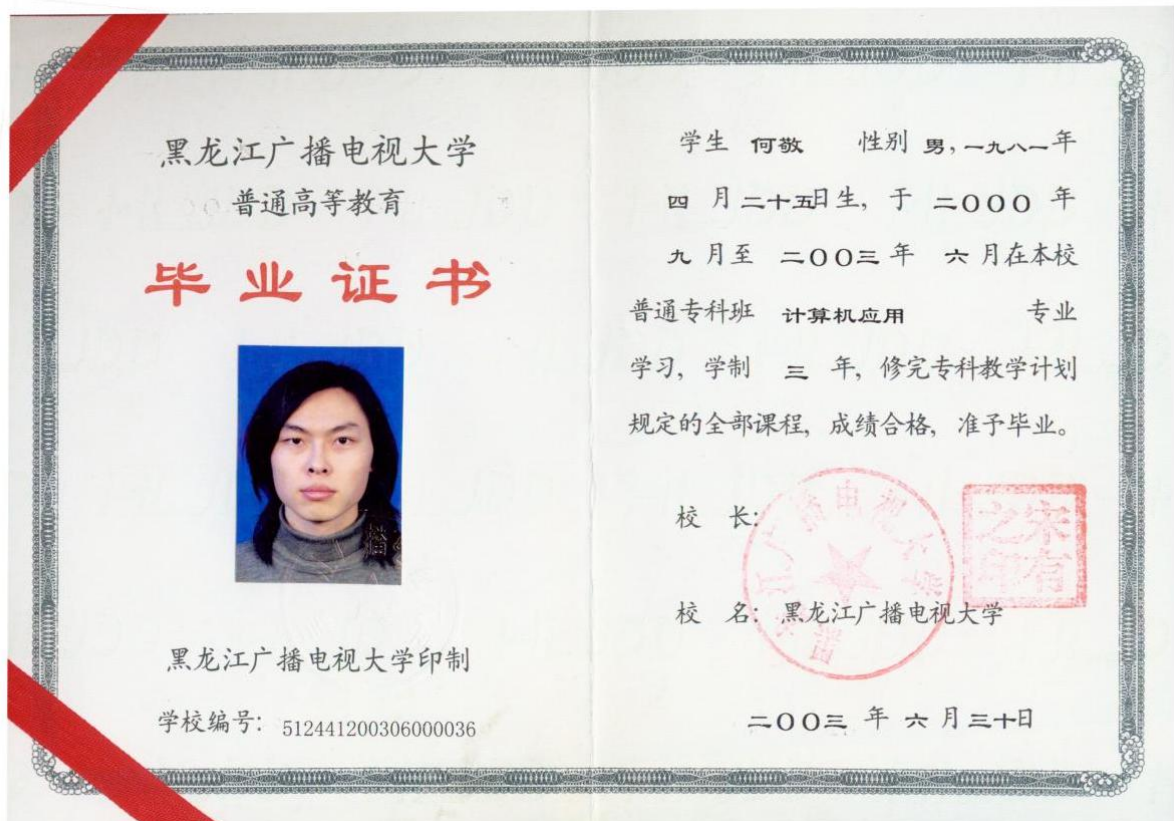 黑龙江广播电视大学
普通高等教育
毕业证书
黑龙江广播电视大学印制
学校编号：512441200306000036
学生 何敬 性别 男，一九八一年
四 月二十五日生，于 二〇〇〇 年
九 月至 二〇〇三 年 六 月在本校
普通专科班 计算机应用 专业
学习，学制 三 年，修完专科教学计划
规定的全部课程，成绩合格，准予毕业。
校 长：
宋有
之印
校 名：黑龙江广播电视大学
黑龙江广播电视大学
二〇〇三 年 六 月三十日